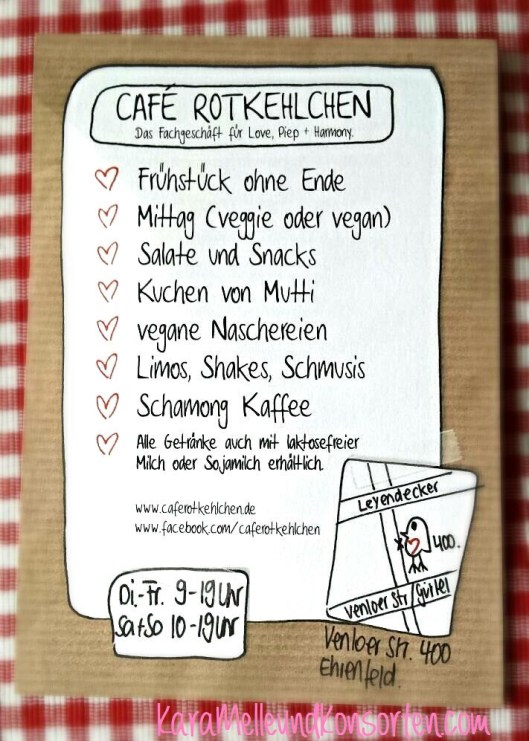 CAFÉ ROTKEHLCHEN
Das Fachgeschäft für Love, Piep + Harmony.
Frühstück ohne Ende
Mittag (veggie oder vegan)
Salate und Snacks
Kuchen von Mutti
vegane Naschereien
Limos, Shakes, Schmusis
Schamong Kaffee
Alle Getränke auch mit laktosefreier
Milch oder Sojamilch erhältlich.
www.caferotkehlchen.de
www.facebook.com/caferotkehlchen
Leyendecker
400.
Venloer Str/Gürtel
Di.-Fr. 9-19 Uhr
Sa+So 10-19 Uhr
Venloer Str. 400
Ehrenfeld.
KaraMelleundKonsorten.com